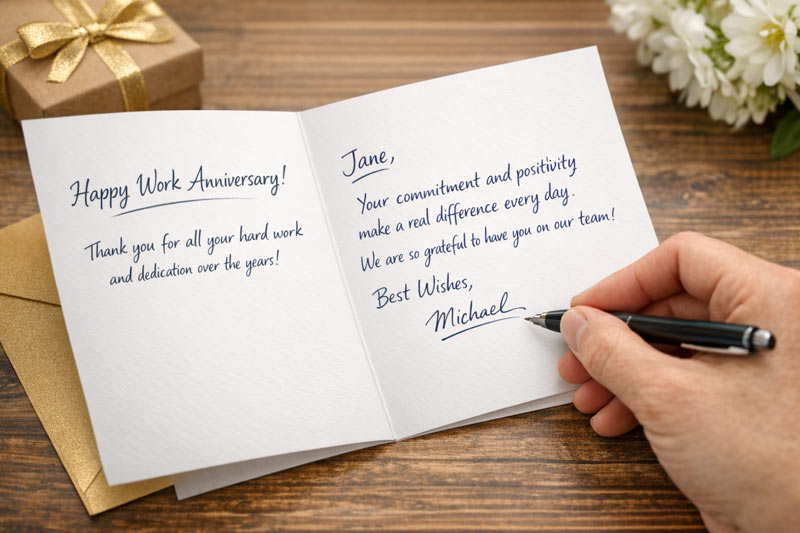 Happy Work Anniversary!
Thank you for all your hard work
and dedication over the years!
Jane,
Your commitment and positivity
make a real difference every day.
We are so grateful to have you on our team!
Best Wishes,
Michael